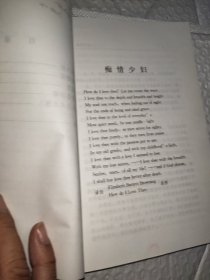 痴情少妇
How do I love thee? Let me count the ways.
I love thee to the depth and breadth and height
My soul can reach, when feeling out of sight
For the ends of being and ideal grace.
I love thee to the level of everyday's
Most quiet need, by sun
I love thee freely, as men strive for right;
I love thee purely, as they turn from praise.
I love thee with the passion put to use
In my old griefs, and with my childhood's faith.
I love thee with a love I seemed to lose
With my lost saints, —I love thee with the breath,
Smiles, tears, of all my life! —and, if God choose,
I shall but love thee better after death.
Elizabeth Barrett Browning
How do I Love Thee